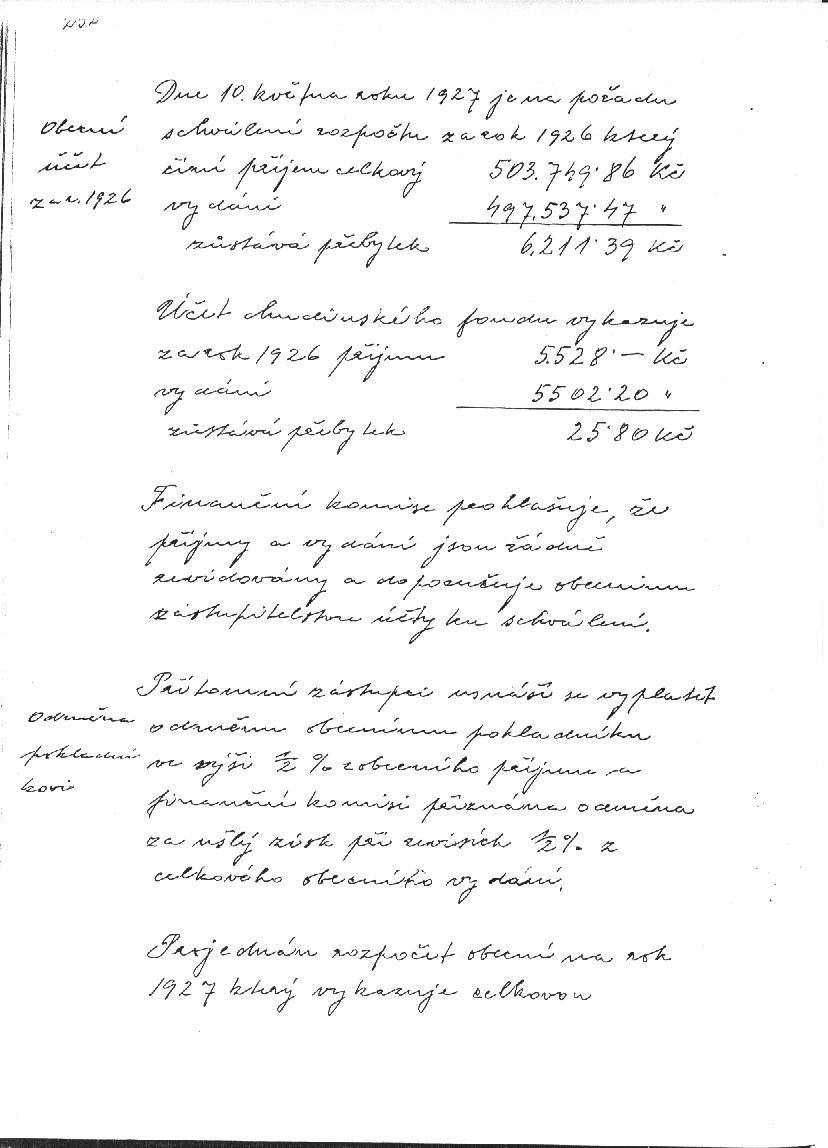 Dne 10. května roku 1927 je na pořadu
Obecní
schválení rozpočtu za rok 1926 který
účet
činí příjem celkový 503.749·86 Kč
za r. 1926
vydání 497.537·47 "
zůstává přebytek 6.211·39 Kč
Účet chudinského fondu vykazuje
za rok 1926 příjmu 5.528·— Kč
vydání 5502·20 "
zůstává přebytek 25·80 Kč
Finanční komise prohlašuje, že
příjmy a vydání jsou řádně
revidovány a doporučuje obecnímu
zástupitelstvu účty ku schválení.
Přítomní zástupci usnáší se vyplatit
Odměna
odměnu obecnímu pokladníku
pokladní
ve výši ½ % z obecního příjmu a
kovi
finanční komisi přiznána odměna
za ušlý zisk při revisích ½ % z
celkového obecního vydání.
Projednán rozpočet obecní na rok
1927 který vykazuje celkovou